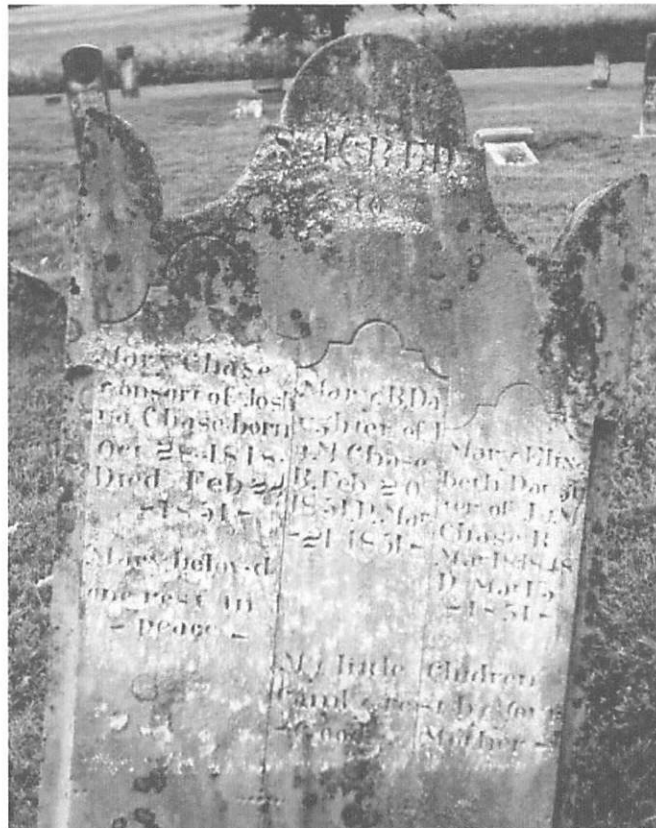 SACRED
to
Mary Chase
consort of Josh
ua Chase born
Oct 28 1818.
Died Feb 22
-1851-
Mary beloved
one rest in
- peace -
Mary B. Da
ughter of J
. M Chase
B. Feb 20
1851. D. Mar
-21 1851-
My little
rest
Good
Mary Eliza
beth Daugh
ter of J. & M
Chase B.
Mar 18 1848
D. Mar
-1851-
Children
by Your
Mother -